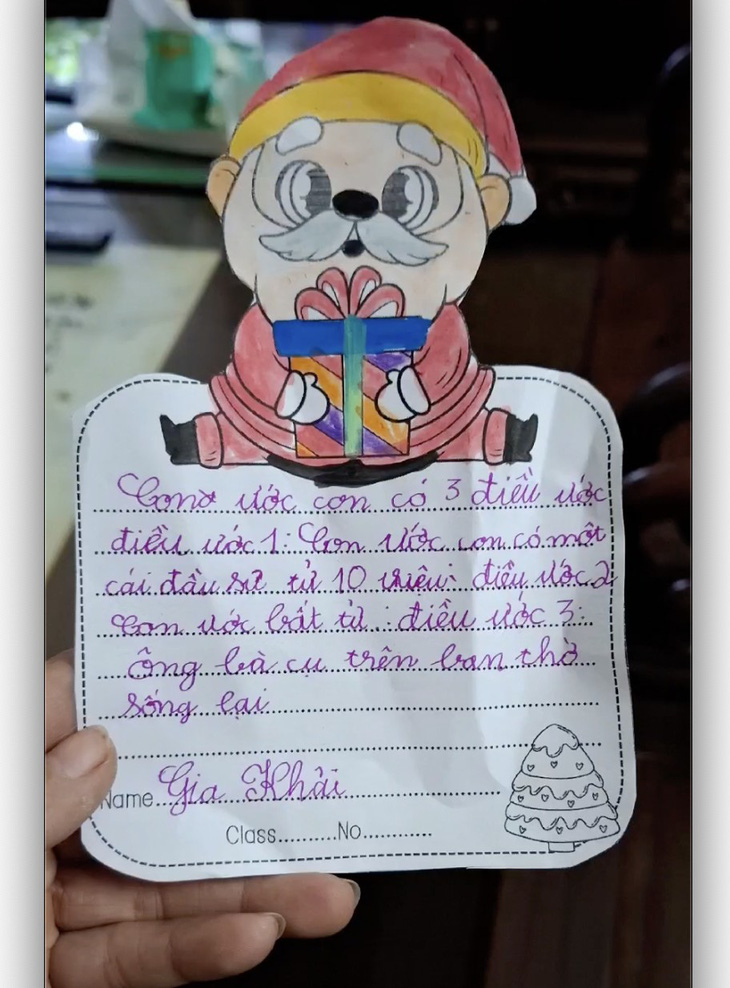 Cong ước con có 3 điều ước
điều ước 1: Con ước con có một
cái đầu sư tử 10 triệu: điều ước 2
Con ước bất tử: điều ước 3:
Ông bà cụ trên ban thờ
sống lại
Name Gia Khải
Class No